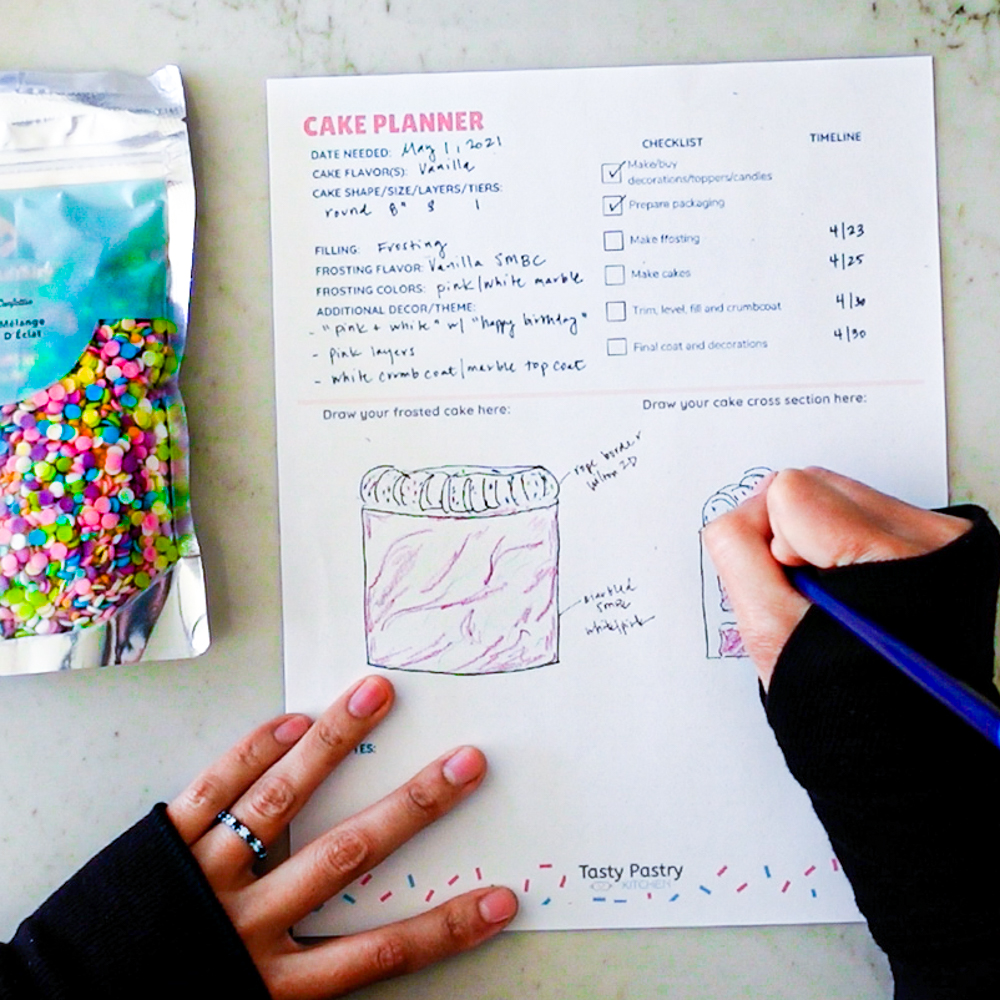 CAKE PLANNER
DATE NEEDED: May 1, 2021
CAKE FLAVOR(S): Vanilla
CAKE SHAPE/SIZE/LAYERS/TIERS:
round 8" 3 1
FILLING: Frosting
FROSTING FLAVOR: Vanilla SMBC
FROSTING COLORS: pink/white marble
ADDITIONAL DECOR/THEME:
- "pink + white" w/ "happy birthday"
- pink layers
- white crumb coat/marble top coat
CHECKLIST TIMELINE
Make/buy
decorations/toppers/candies
Prepare packaging
Make ffosting 4/23
Make cakes 4/25
Trim, level, fill and crumbcoat 4/30
Final coat and decorations 4/30
Draw your frosted cake here:
Draw your cake cross section here:
rope border
wilton 2D
marbled
SMBC
white/pink
Mélange
D'Éclat
Tasty Pastry
KITCHEN